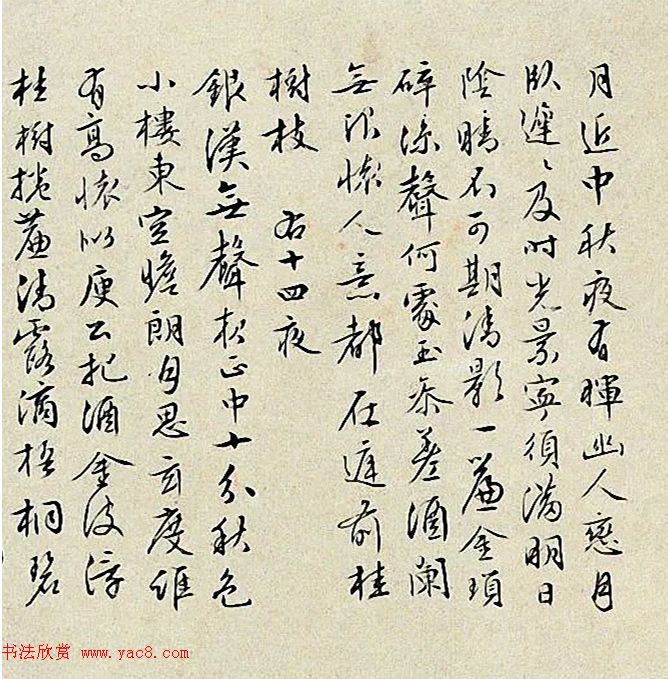 月近中秋夜有暉幽人戀月
臥遲遲及时光景寧須滿明日
陰晴不可期清影一簾金瑣
碎涼聲何處玉參差酒闌
無限懷人意都在庭前桂
樹枝 右十四夜
銀漢無聲夜正中十分秋色
小樓東空瞻朗月思玄度誰
有高懷似庾公把酒金波浮
桂樹捲簾清露滴梧桐碧
书法欣赏 www.yac8.com